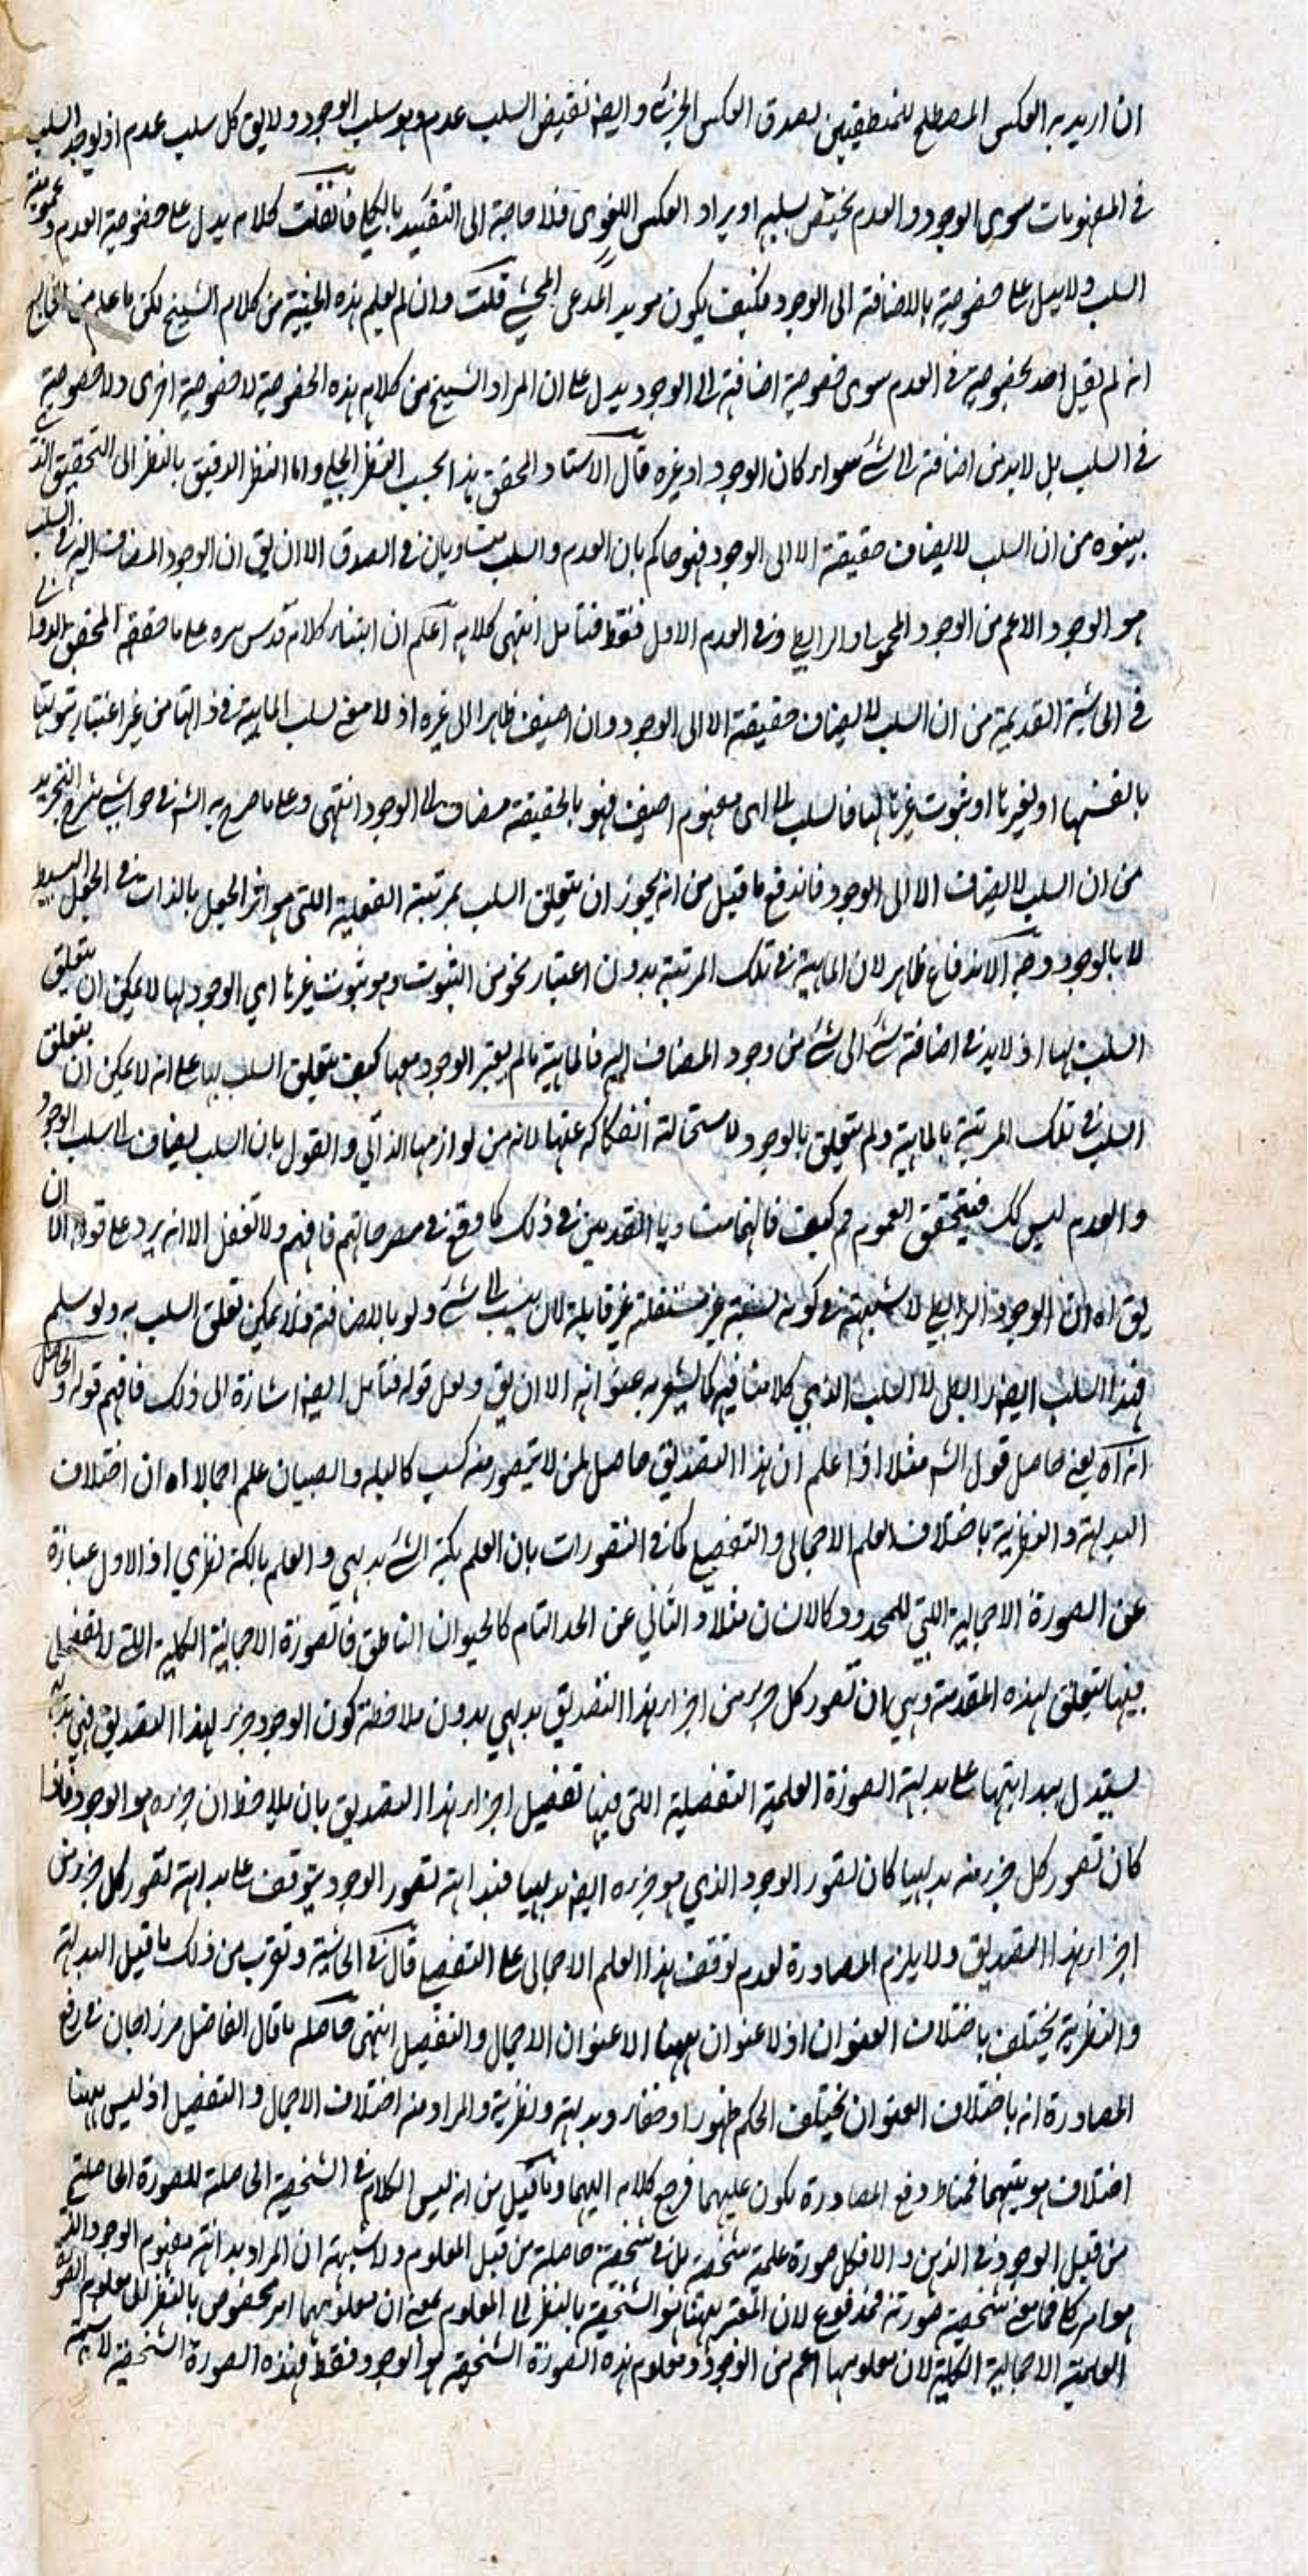 ان اريد به العكس المصطلح للمنطقيين لصدق العكس الجزئي وايضا نقيض السلب عدم وهو سلب الوجود ولا يق كل سلب عدم اذ يوجد السلب
في المفهومات سوى الوجود والعدم يختص بسلبه او يراد العكس اللغوي فلا حاجة الى التقييد بالكلي فان قلت كلامه يدل على خصوصية العدم وعمومية
السلب ولا يدل على خصوصية بالاضافة الى الوجود فكيف يكون مويد المدعى المحشي قلت وان لم يعلم هذه الحيثية من كلام الشيخ لكن ما علم من
انه لم يقل احد بخصوصية في العدم سوى خصوصية اضافته الى الوجود يدل على ان المراد الشيخ من كلامه هذه الخصوصية لا خصوصية اخرى ولا خصوصية
في السلب بل لا بد من اضافته الى شئ سواء كان الوجود او غيره قال الاستاد المحقق هذا بحسب النظر الجلي واما النظر الدقيق بالنظر الى التحقيق الذي
بينوه من ان السلب لا يضاف حقيقة الا الى الوجود فهو حاكم بان العدم والسلب متساويان في الصدق الا ان يق ان الوجود المضاف اليه في السلب
هو الوجود الاعم من الوجود المحمولي او الرابطي وفي العدم الاول فقط فتأمل انتهى كلامه اعلم ان ابتناء كلامه قدس سره على ما حققه المحقق الدواني
في الحاشية القديمة من ان السلب لا يضاف حقيقة الا الى الوجود وان اضيف ظاهرا الى غيره اذ لا معنى لسلب الماهية في ذاتها من غير اعتبار ثبوتها
بالنفسها او لغيرها او ثبوت غيرها لها فالسلب الى اى مفهوم اضيف فهو بالحقيقة مضاف الى الوجود انتهى وعلى ما صرح به الشه في حواشي شرح التجريد
من ان السلب لا يضاف الا الى الوجود فاندفع ما قيل من انه يجوز ان يتعلق السلب بمرتبة الفعلية اللتي هو اثر الجعل بالذات في الجعل البسيط
لا بالوجود وجه الاندفاع ظاهر لان الماهية في تلك المرتبة بدون اعتبار نحو من الثبوت وهو ثبوت غيرها اي الوجود لها لا يمكن ان يتعلق
السلب بها اذ لا بد في اضافة شئ الى شئ من وجود المضاف اليه فالماهية ما لم يعتبر الوجود معها كيف يتعلق السلب بها على انه لا يمكن ان يتعلق
السلب في تلك المرتبة بالماهية ولم يتعلق بالوجود لاستحالة انفكاكه عنها لانه من لوازمها الذاتي والقول بان السلب يضاف الى سلب الوجود
والعدم ليس كك فيتحقق العموم كيف فالهامت في ذلك كما وقع في فافهم ولا تغفل الا انه يرد على قوله الا ان
يق اه ان الوجود الرابطي لا شبهة في كونه نسبة غير مستقلة غير قابلة لان ينسب الى شئ ولو بالاضافة فلا يمكن تعلق السلب به ولو سلم
فهذا السلب ايضا رابطي لا السلب الذي كلامنا فيه كما يشعر به عنوانه الا ان يق ولعل قوله فتأمل ايضا اشارة الى ذلك فافهم قوله والحاصل
انه اه يعني حاصل قول الشه مثلا اذا علم ان هذا التصديق حاصل لمن لا يتصور منه كسب كالبله والصبيان علم اجمالا اه ان اختلاف
البديهة والنظرية باختلاف العلم الاجمالي والتفصيلي كما في التصورات بان العلم بكنه الشئ بديهي والعلم بالكنه نظري اذ الاول عبارة
عن الصورة الاجمالية اللتي للمحدود كالانسان مثلا والثاني عن الحد التام كالحيوان الناطق فالصورة الاجمالية الكلية اللتي لا تفصيل
فيها يتعلق بهذه المقدمة وهي ان تصور كل جزء من اجزاء هذا التصديق بديهي بدون ملاحظة كون الوجود جزء لهذا التصديق فهي بديهية
يستدل ببداهتها على بديهة الصورة العلمية التفصلية اللتي فيها تفصيل اجزاء هذا التصديق بان يلاحظ ان جزءه هو الوجود فاذا
كان تصور كل جزء منه بديهيا كان تصور الوجود الذي هو جزءه ايضا بديهيا فبداهته تصور الوجود يتوقف على بداهته تصور كل جزء من
اجزاء هذا التصديق ولا يلزم المصادرة لعدم توقف هذا العلم الاجمالي على التفصيلي قال في الحاشية وتقرب من ذلك ما قيل البديهة
والنظرية يختلف باختلاف العنوان اذ لا عنوان ههنا الا عنوان الاجمال والتفصيل انتهى حاصله ما قال الفاضل مرزاجان في رفع
المصادرة انه باختلاف العنوان يختلف الحكم ظهورا وخفاء وبديهة ونظرية والمراد منه اختلاف الاجمال والتفصيل اذ ليس ههنا
اختلاف هويتيهما فمناط دفع المصادرة يكون عليهما فرجع كلامه اليهما وما قيل من انه ليس الكلام في الشخصية الحاصلة للصورة الحاصلة
من قبل الوجود في الذهن والا فكل صورة علمية شخصية بل في شخصية حاصلة من قبل المعلوم ولا شبهة ان المراد بداهته مفهوم الوجود الذي
هو امر كلي فما معنى شخصية صورته فمدفوع لان المعتبر ههنا هو الشخصية بالنظر الى المعلوم بمعنى ان معلومهما امر مخصوص بالنظر الى معلوم الصورة
العلمية الاجمالية الكلية لان معلومها اعم من الوجود ومعلوم هذه الصورة الشخصية هو الوجود فقط فهذه الصورة الشخصية لا شبهة